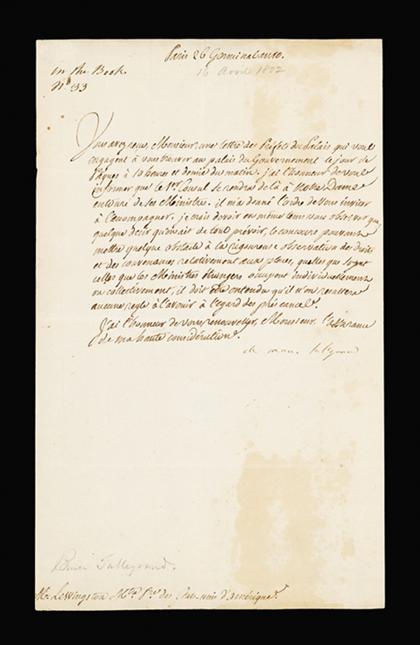 Paris 26 Germinal an 10.
16 Avril 1802
in the Book
N° 33
Vous avez reçu, Monsieur, une lettre des Préfets du Palais qui vous
engagent à vous trouver au palais du Gouvernement le jour de
Pâques à 10 heures et demie du matin. j'ai l'honneur de vous
informer que le 1er Consul se rendra de là à Notre Dame
entouré de ses Ministres. il m'a donné l'ordre de vous inviter
à l'accompagner. je crois devoir en même tems vous observer que,
quelque désir qu'on ait de tout prévoir, le concours pouvant
mettre quelque obstacle à la rigoureuse observation des droits
et des convenances relativement aux places, quelles que soyent
celles que les Ministres étrangers occupent individuellement
ou collectivement, il doit être entendu qu'il n'en resultera
aucune règle à l'avenir à l'égard des préséances.
J'ai l'honneur de vous renouveller, Monsieur, l'assurance
de ma haute considération.
ch. mau. talleyrand
Prince Talleyrand.
Mr. Lewingston Mtre Pre des Etats unis d'amérique.